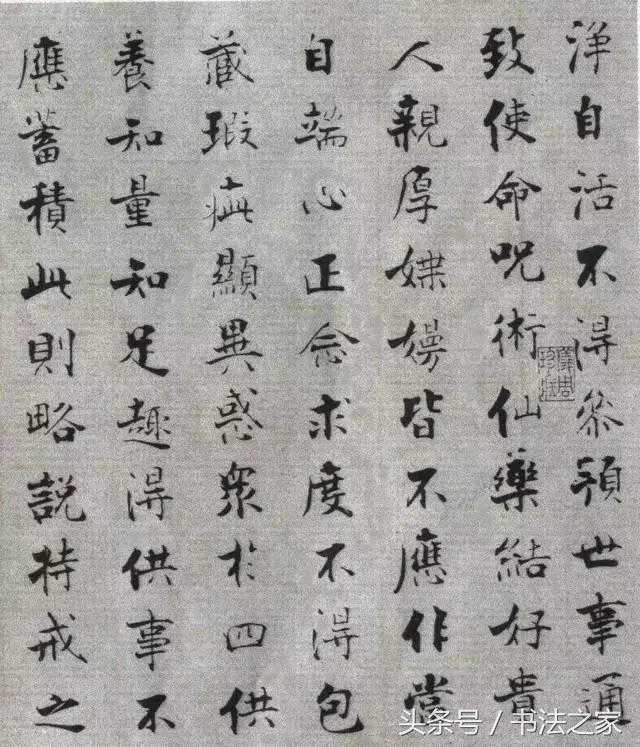 淨自活不得參預世事通
致使命咒術仙藥結好貴
人親厚媟嫚皆不應作當
自端心正念求度不得包
藏瑕疵顯異惑衆於四供
養知量知足趣得供事不
應蓄積此則略說持戒之
头条号／书法之家